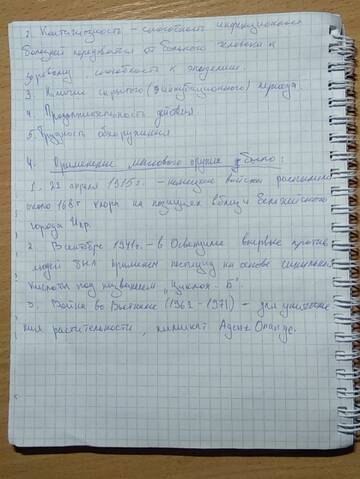 2. Контагиозность – способность инфекционных
болезней передаваться от больного человека к
здоровому – способность к эпидемии.
3. Наличие скрытого (инкубационного) периода
4. Продолжительность действия
5. Трудность обнаружения
4. Применение массового оружия было:
1. 22 апреля 1915г. – немецкие войска распылили
около 168т хлора на позициях вблизи бельгийского
города Ипр.
2. В сентябре 1941г. – в Освенциме впервые против
людей был применен пестицид на основе синильной
кислоты под названием „Циклон-Б".
3. Война во Вьетнаме (1962 - 1971) – для уничтоже
ния растительности, химикат Агент Оранус.